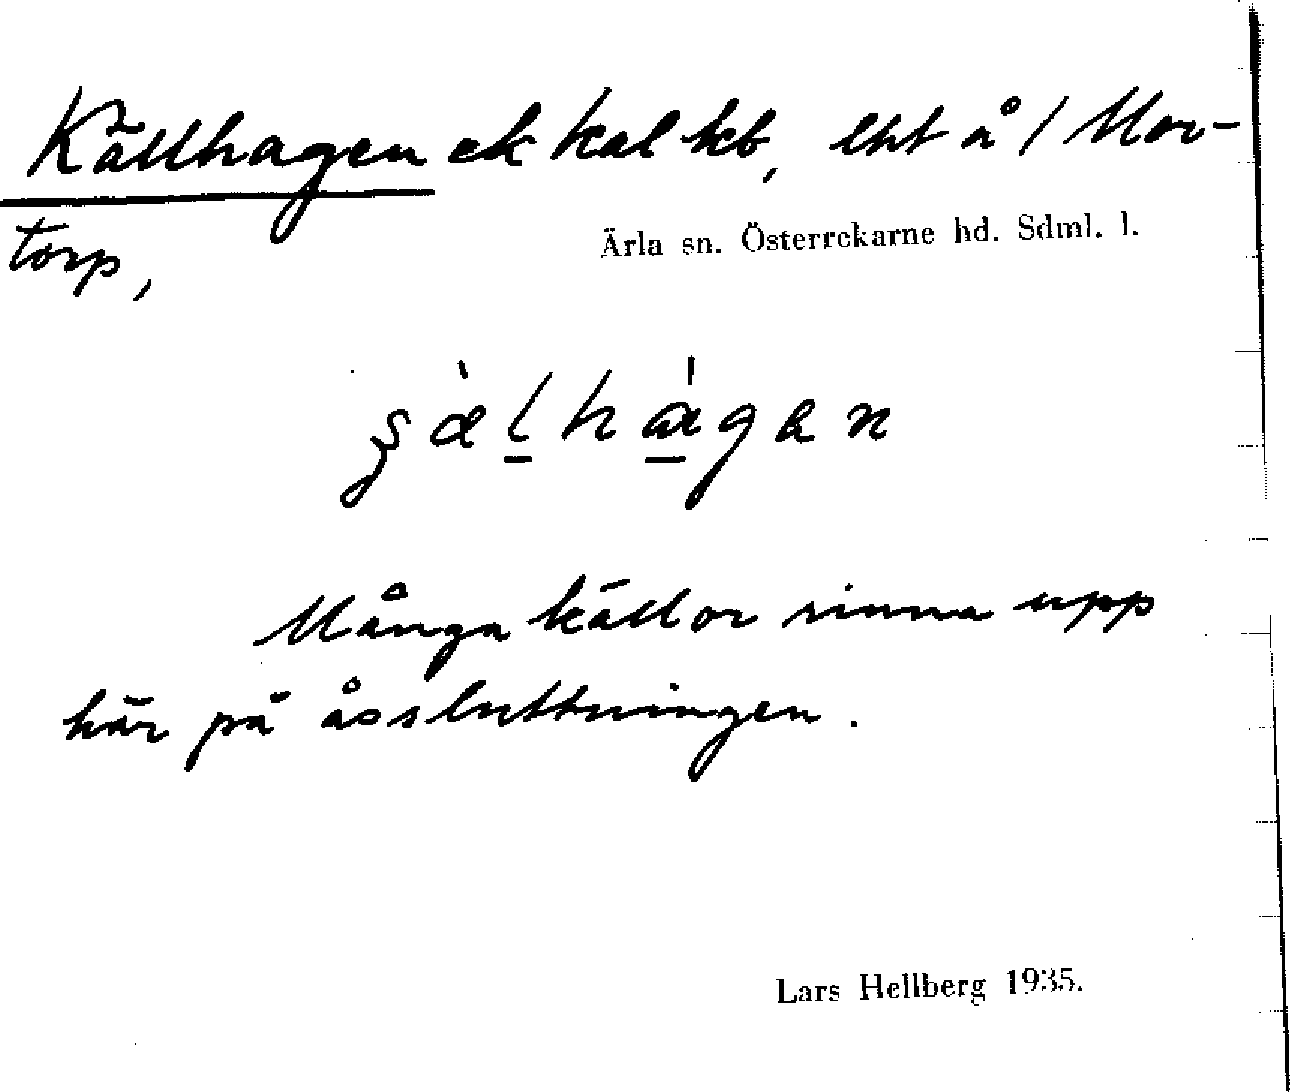 Källhagen ek kal kb, lht å 1 Mor-
torp,
Ärla sn. Österrekarne hd. Sdml. l.
Många källor rinna upp
här på åssluttningen.
Lars Hellberg 1935.